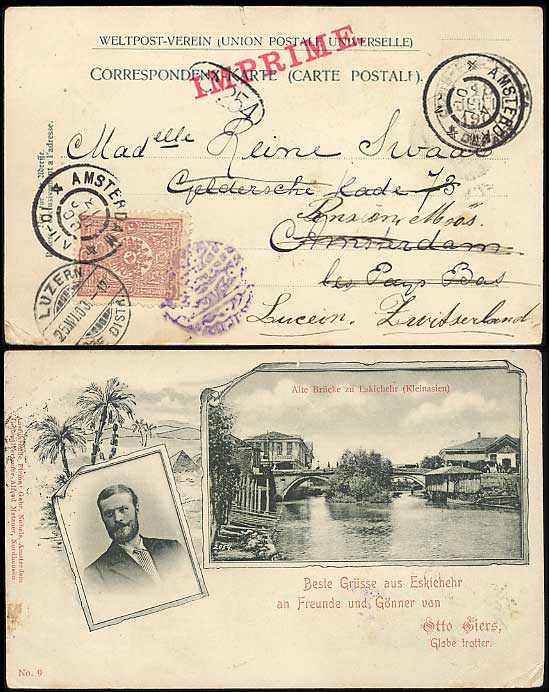 WELTPOST-VEREIN (UNION POSTALE UNIVERSELLE)
CORRESPONDENZ-KARTE (CARTE POSTALE).
IMPRIMÉ
254
Madelle Reine Swaab
Geldersche Kade 73
Pension Moos.
Amsterdam
les Pays Bas
Lucern. Zwitserland.
AMSTERDAM
AMSTERDAM
LUZERN
Alte Brücke zu Eskichehr (Kleinasien)
2057
Beste Grüsse aus Eskichehr
an Freunde und Gönner von
Otto Siers,
Globe trotter.
No. 9